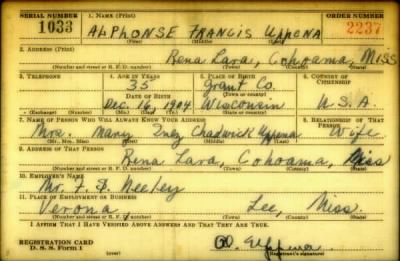 SERIAL NUMBER 1. NAME (Print) ORDER NUMBER
1033 ALPHONSE FRANCIS UPPENA 2237
(First) (Middle) (Last)
2. ADDRESS (Print)
Rena Lara, Cohoama, Miss
(Number and street or R. F. D. number) (Town) (County) (State)
3. TELEPHONE 4. AGE IN YEARS 5. PLACE OF BIRTH 6. COUNTRY OF CITIZENSHIP
35 Grant Co.
DATE OF BIRTH (Town or county)
Dec. 16, 1904 Wisconsin U.S.A.
(Exchange) (Number) (Mo.) (Day) (Yr.) (State or country)
7. NAME OF PERSON WHO WILL ALWAYS KNOW YOUR ADDRESS 8. RELATIONSHIP OF THAT PERSON
Mrs. Mary Inez Chadwick Uppena Wife
(Mr., Mrs., Miss) (First) (Middle) (Last)
9. ADDRESS OF THAT PERSON
Rena Lara, Cohoama, Miss
(Number and street or R. F. D. number) (Town) (County) (State)
10. EMPLOYER'S NAME
Mr. F. Neeley
11. PLACE OF EMPLOYMENT OR BUSINESS
Verona Lee, Miss.
(Number and street or R. F. D. number) (Town) (County) (State)
I AFFIRM THAT I HAVE VERIFIED ABOVE ANSWERS AND THAT THEY ARE TRUE.
REGISTRATION CARD
D. S. S. Form 1 Uppena
(over) (Registrant's signature)